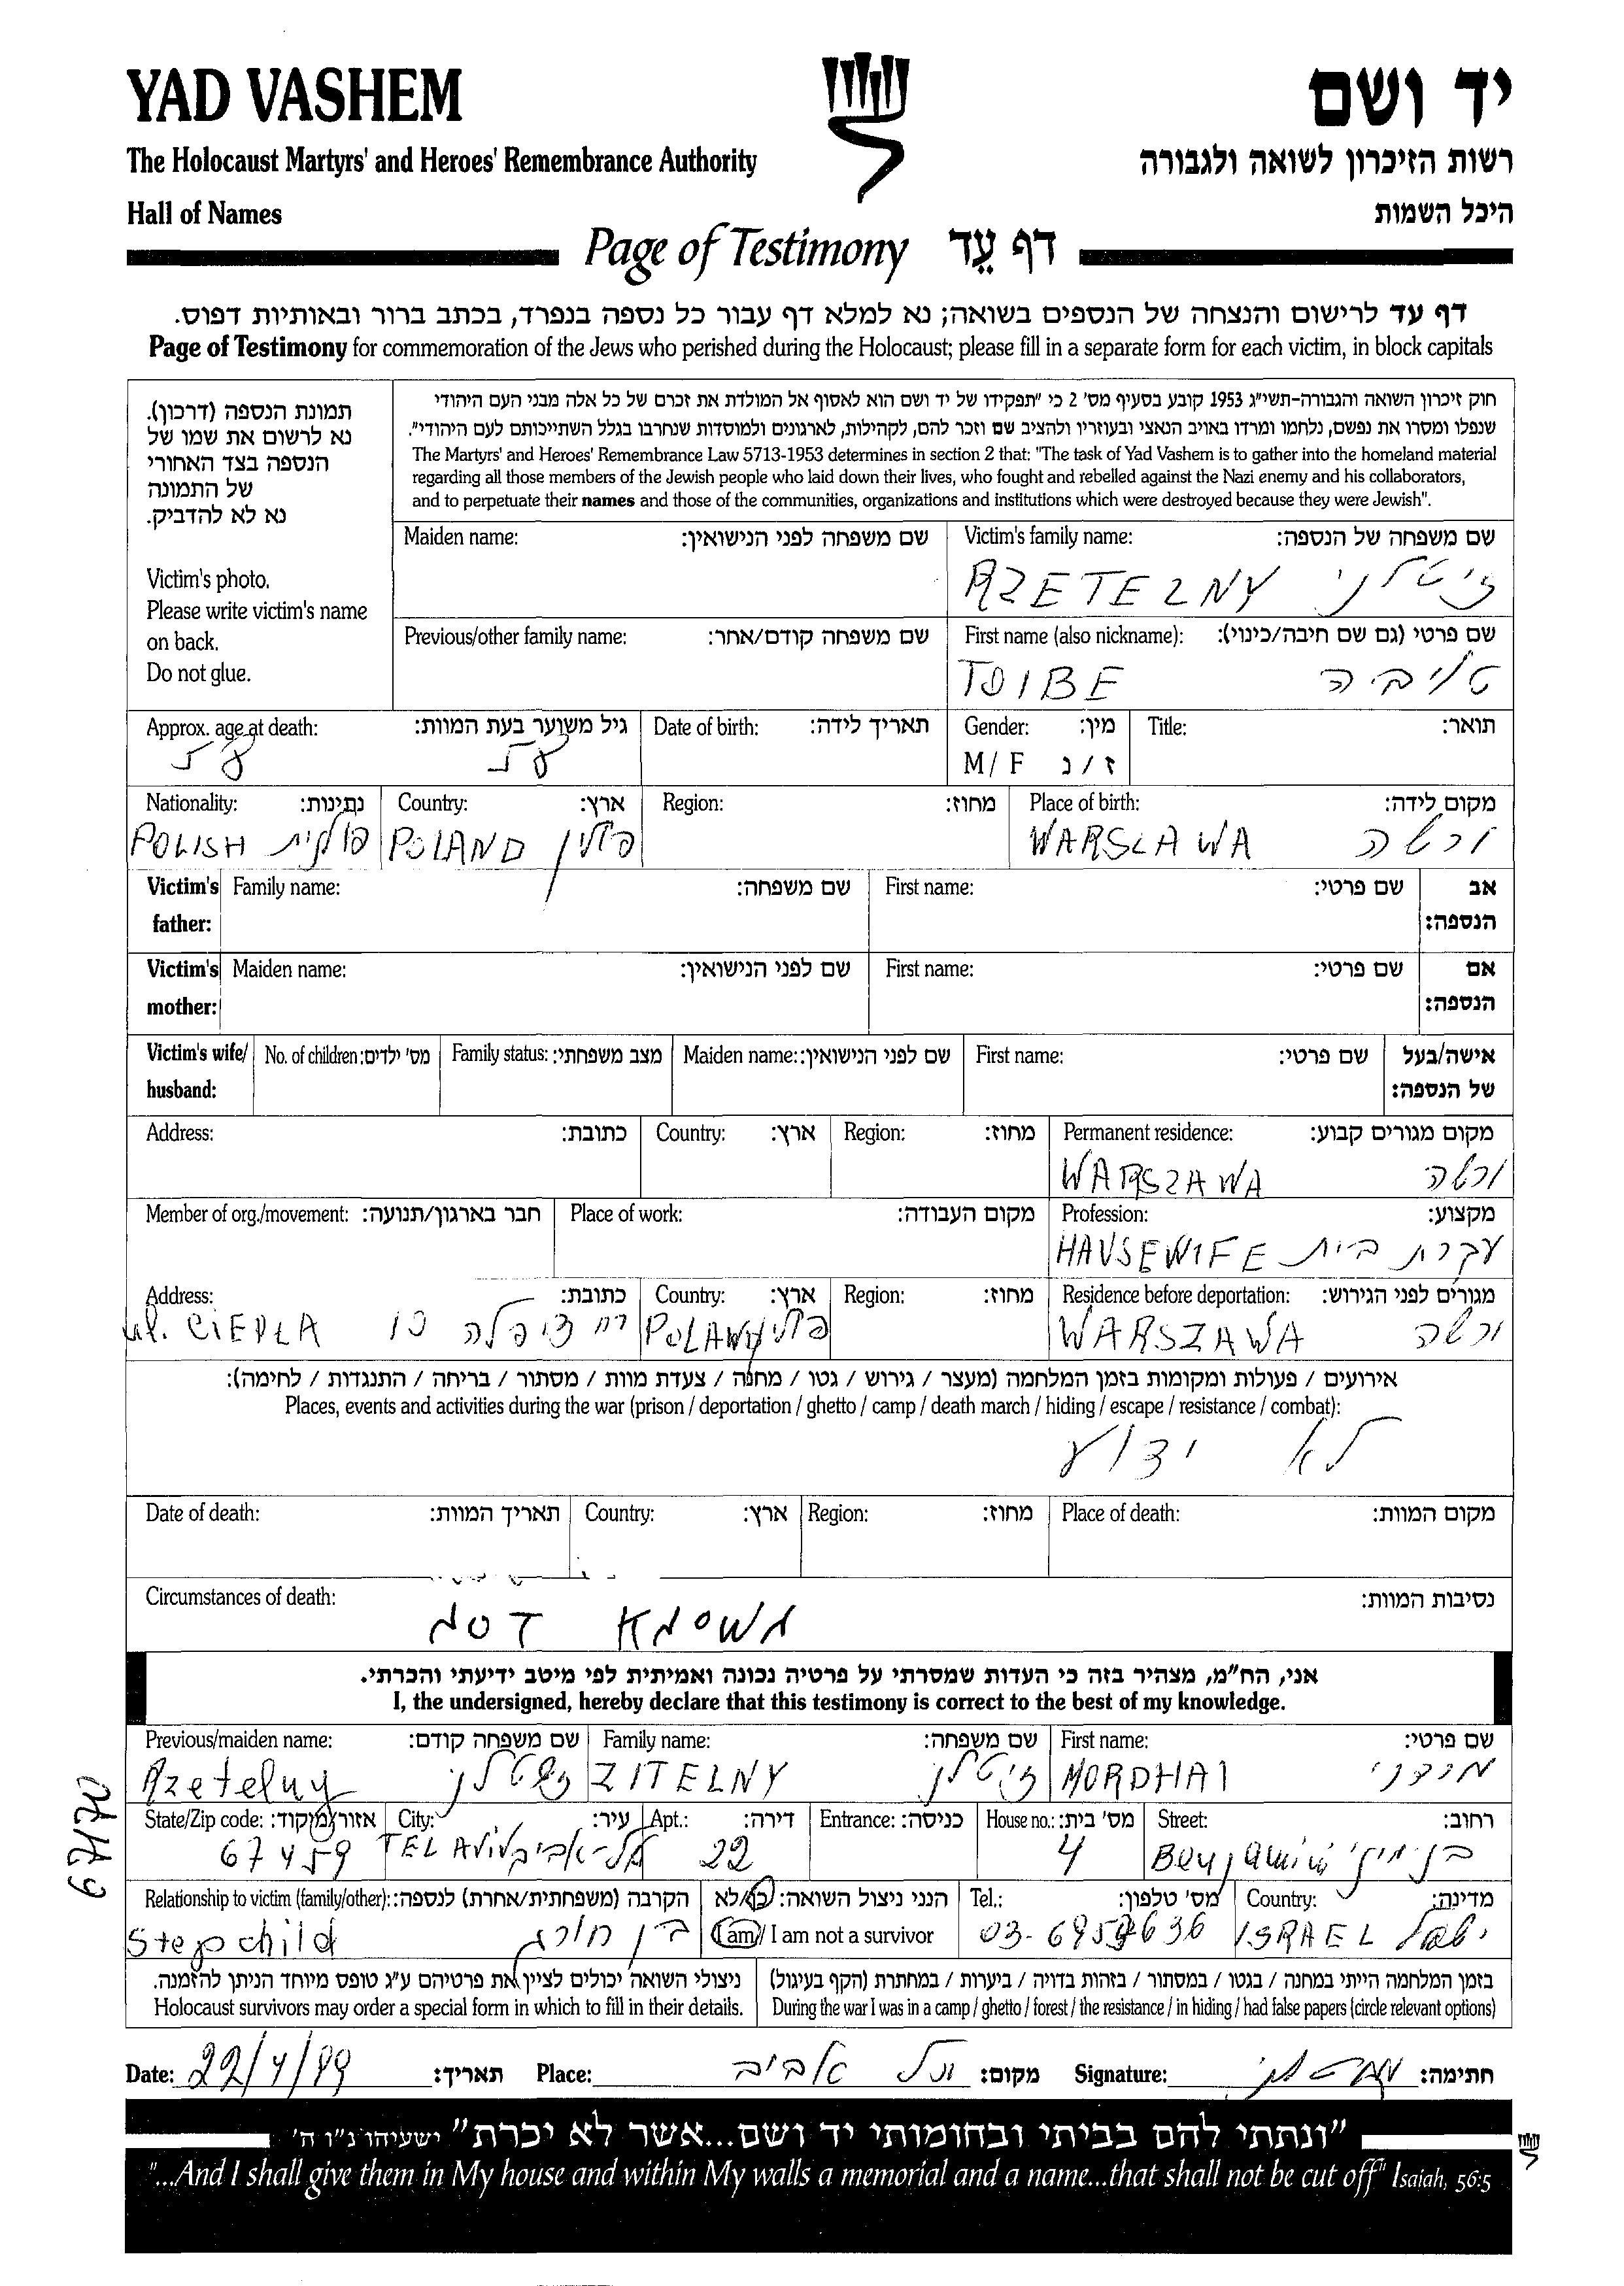 YAD VASHEM
יד ושם
The Holocaust Martyrs' and Heroes' Remembrance Authority
רשות הזיכרון לשואה ולגבורה
Hall of Names
היכל השמות
Page of Testimony דף עֵד
דף עד לרישום והנצחה של הנספים בשואה; נא למלא דף עבור כל נספה בנפרד, בכתב ברור ובאותיות דפוס.
Page of Testimony for commemoration of the Jews who perished during the Holocaust; please fill in a separate form for each victim, in block capitals
תמונת הנספה (דרכון).
נא לרשום את שמו של
הנספה בצד האחורי
של התמונה
נא לא להדביק.
Victim's photo.
Please write victim's name
on back.
Do not glue.
חוק זיכרון השואה והגבורה-תשי"ג 1953 קובע בסעיף מס' 2 כי "תפקידו של יד ושם הוא לאסוף אל המולדת את זכרם של כל אלה מבני העם היהודי
שנפלו ומסרו את נפשם, נלחמו ומרדו באויב הנאצי ובעוזריו ולהציב שם וזכר להם, לקהילות, לארגונים ולמוסדות שנחרבו בגלל השתייכותם לעם היהודי".
The Martyrs' and Heroes' Remembrance Law 5713-1953 determines in section 2 that: "The task of Yad Vashem is to gather into the homeland material
regarding all those members of the Jewish people who laid down their lives, who fought and rebelled against the Nazi enemy and his collaborators,
and to perpetuate their names and those of the communities, organizations and institutions which were destroyed because they were Jewish".
Maiden name: שם משפחה לפני הנישואין: Victim's family name: שם משפחה של הנספה:
RZETELNY ז'יטלני
Previous/other family name: שם משפחה קודם/אחר: First name (also nickname): שם פרטי (גם שם חיבה/כינוי):
TOIBE טויבה
Approx. age at death: גיל משוער בעת המוות: Date of birth: תאריך לידה: Gender: מין: Title: תואר:
M/F ז/נ
Nationality: נתינות: Country: ארץ: Region: מחוז: Place of birth: מקום לידה:
POLISH פולנית POLAND פולין WARSZAWA ורשה
Victim's father: Family name: שם משפחה: First name: שם פרטי: אב הנספה:
Victim's mother: Maiden name: שם לפני הנישואין: First name: שם פרטי: אם הנספה:
Victim's wife/husband: No. of children: מס' ילדים: Family status: מצב משפחתי: Maiden name: שם לפני הנישואין: First name: שם פרטי: אישה/בעל של הנספה:
Address: כתובת: Country: ארץ: Region: מחוז: Permanent residence: מקום מגורים קבוע:
WARSZAWA ורשה
Member of org./movement: חבר בארגון/תנועה: Place of work: מקום העבודה: Profession: מקצוע:
HAUSEWIFE עקרת בית
Address: כתובת: Country: ארץ: Region: מחוז: Residence before deportation: מגורים לפני הגירוש:
ul. CIEPŁA 10 רח ציפלה POLAND פולין WARSZAWA ורשה
אירועים / פעולות ומקומות בזמן המלחמה (מעצר / גירוש / גטו / מחנה / צעדת מוות / מסתור / בריחה / התנגדות / לחימה):
Places, events and activities during the war (prison / deportation / ghetto / camp / death march / hiding / escape / resistance / combat):
לא ידוע
Date of death: תאריך המוות: Country: ארץ: Region: מחוז: Place of death: מקום המוות:
Circumstances of death: נסיבות המוות:
NOT KNOWN
אני, הח"מ, מצהיר בזה כי העדות שמסרתי על פרטיה נכונה ואמיתית לפי מיטב ידיעתי והכרתי.
I, the undersigned, hereby declare that this testimony is correct to the best of my knowledge.
Previous/maiden name: שם משפחה קודם: Family name: שם משפחה: First name: שם פרטי:
Rzetelny ZITELNY ז'יטלני MORDHAI מרדכי
67170
State/Zip code: אזור/מיקוד: City: עיר: Apt.: דירה: Entrance: כניסה: House no.: מס' בית: Street: רחוב:
67459 TEL AVIV תל-אביב 22 4 Benjamini בנימיני
Relationship to victim (family/other): הקרבה (משפחתית/אחרת) לנספה: הנני ניצול השואה: כן/לא Tel.: מס' טלפון: Country: מדינה:
Stepchild בן חורג I am / I am not a survivor 03-6957636 ISRAEL ישראל
ניצולי השואה יכולים לציין את פרטיהם ע"ג טופס מיוחד הניתן להזמנה. בזמן המלחמה הייתי במחנה / בגטו / במסתור / בזהות בדויה / ביערות / במחתרת (הקף בעיגול)
Holocaust survivors may order a special form in which to fill in their details. During the war I was in a camp / ghetto / forest / the resistance / in hiding / had false papers (circle relevant options)
Date: 22/4/99 תאריך: Place: תל אביב מקום: Signature: חתימה:
"ונתתי להם בביתי ובחומותי יד ושם...אשר לא יכרת" ישעיהו נ"ו ה'
"...And I shall give them in My house and within My walls a memorial and a name...that shall not be cut off" Isaiah, 56:5